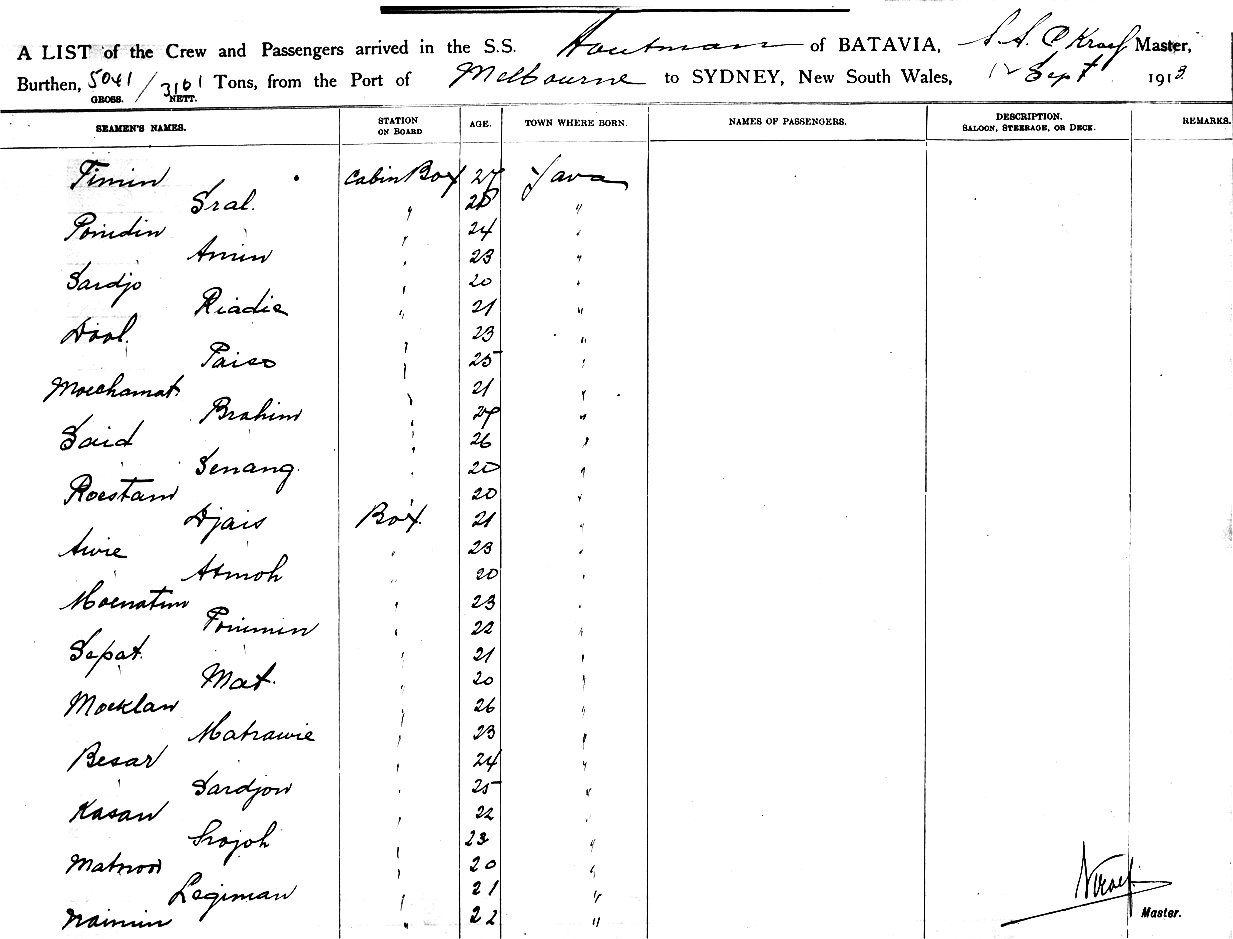 A LIST of the Crew and Passengers arrived in the S.S. Houtman of BATAVIA, Master,
Burthen, 5041 / 3101 Tons, from the Port of Melbourne to SYDNEY, New South Wales, 12 Sept 1913.
GROSS. NETT.
SEAMEN'S NAMES. STATION ON BOARD AGE. TOWN WHERE BORN. NAMES OF PASSENGERS. DESCRIPTION. SALOON, STEERAGE, OR DECK. REMARKS.
Timin Cabin Boy 27 Java
Sral. " 28 "
Ponidin " 24 "
Amin " 23 "
Sardjo " 20 "
Riadie " 21 "
Dool. " 23 "
Paiso " 25 "
Moechamat " 21 "
Brahim " 27 "
Said " 26 "
Senang. " 20 "
Roestam " 20 "
Djais Boy. 21 "
Awie " 23 "
Asmoh " 20 "
Moenatim " 23 "
Ponimin " 22 "
Sepat. " 21 "
Mat. " 20 "
Moeklan " 26 "
Matrawie " 23 "
Besar " 24 "
Sardjon " 25 "
Kasan " 22 "
Srojoh " 23 "
Matnoor " 20 "
Legiman " 21 "
Naimin " 22 "
Master.